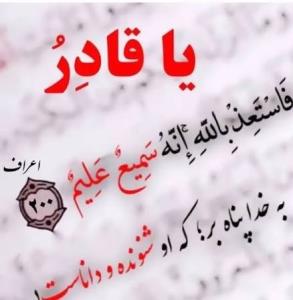 یا قادِرُ
فَاسْتَعِذْ بِاللَّهِ إِنَّهُ سَمِيعٌ عَلِيمٌ
اعراف
۲۰۰
به خدا پناه بر؛ که او شنونده و داناست!